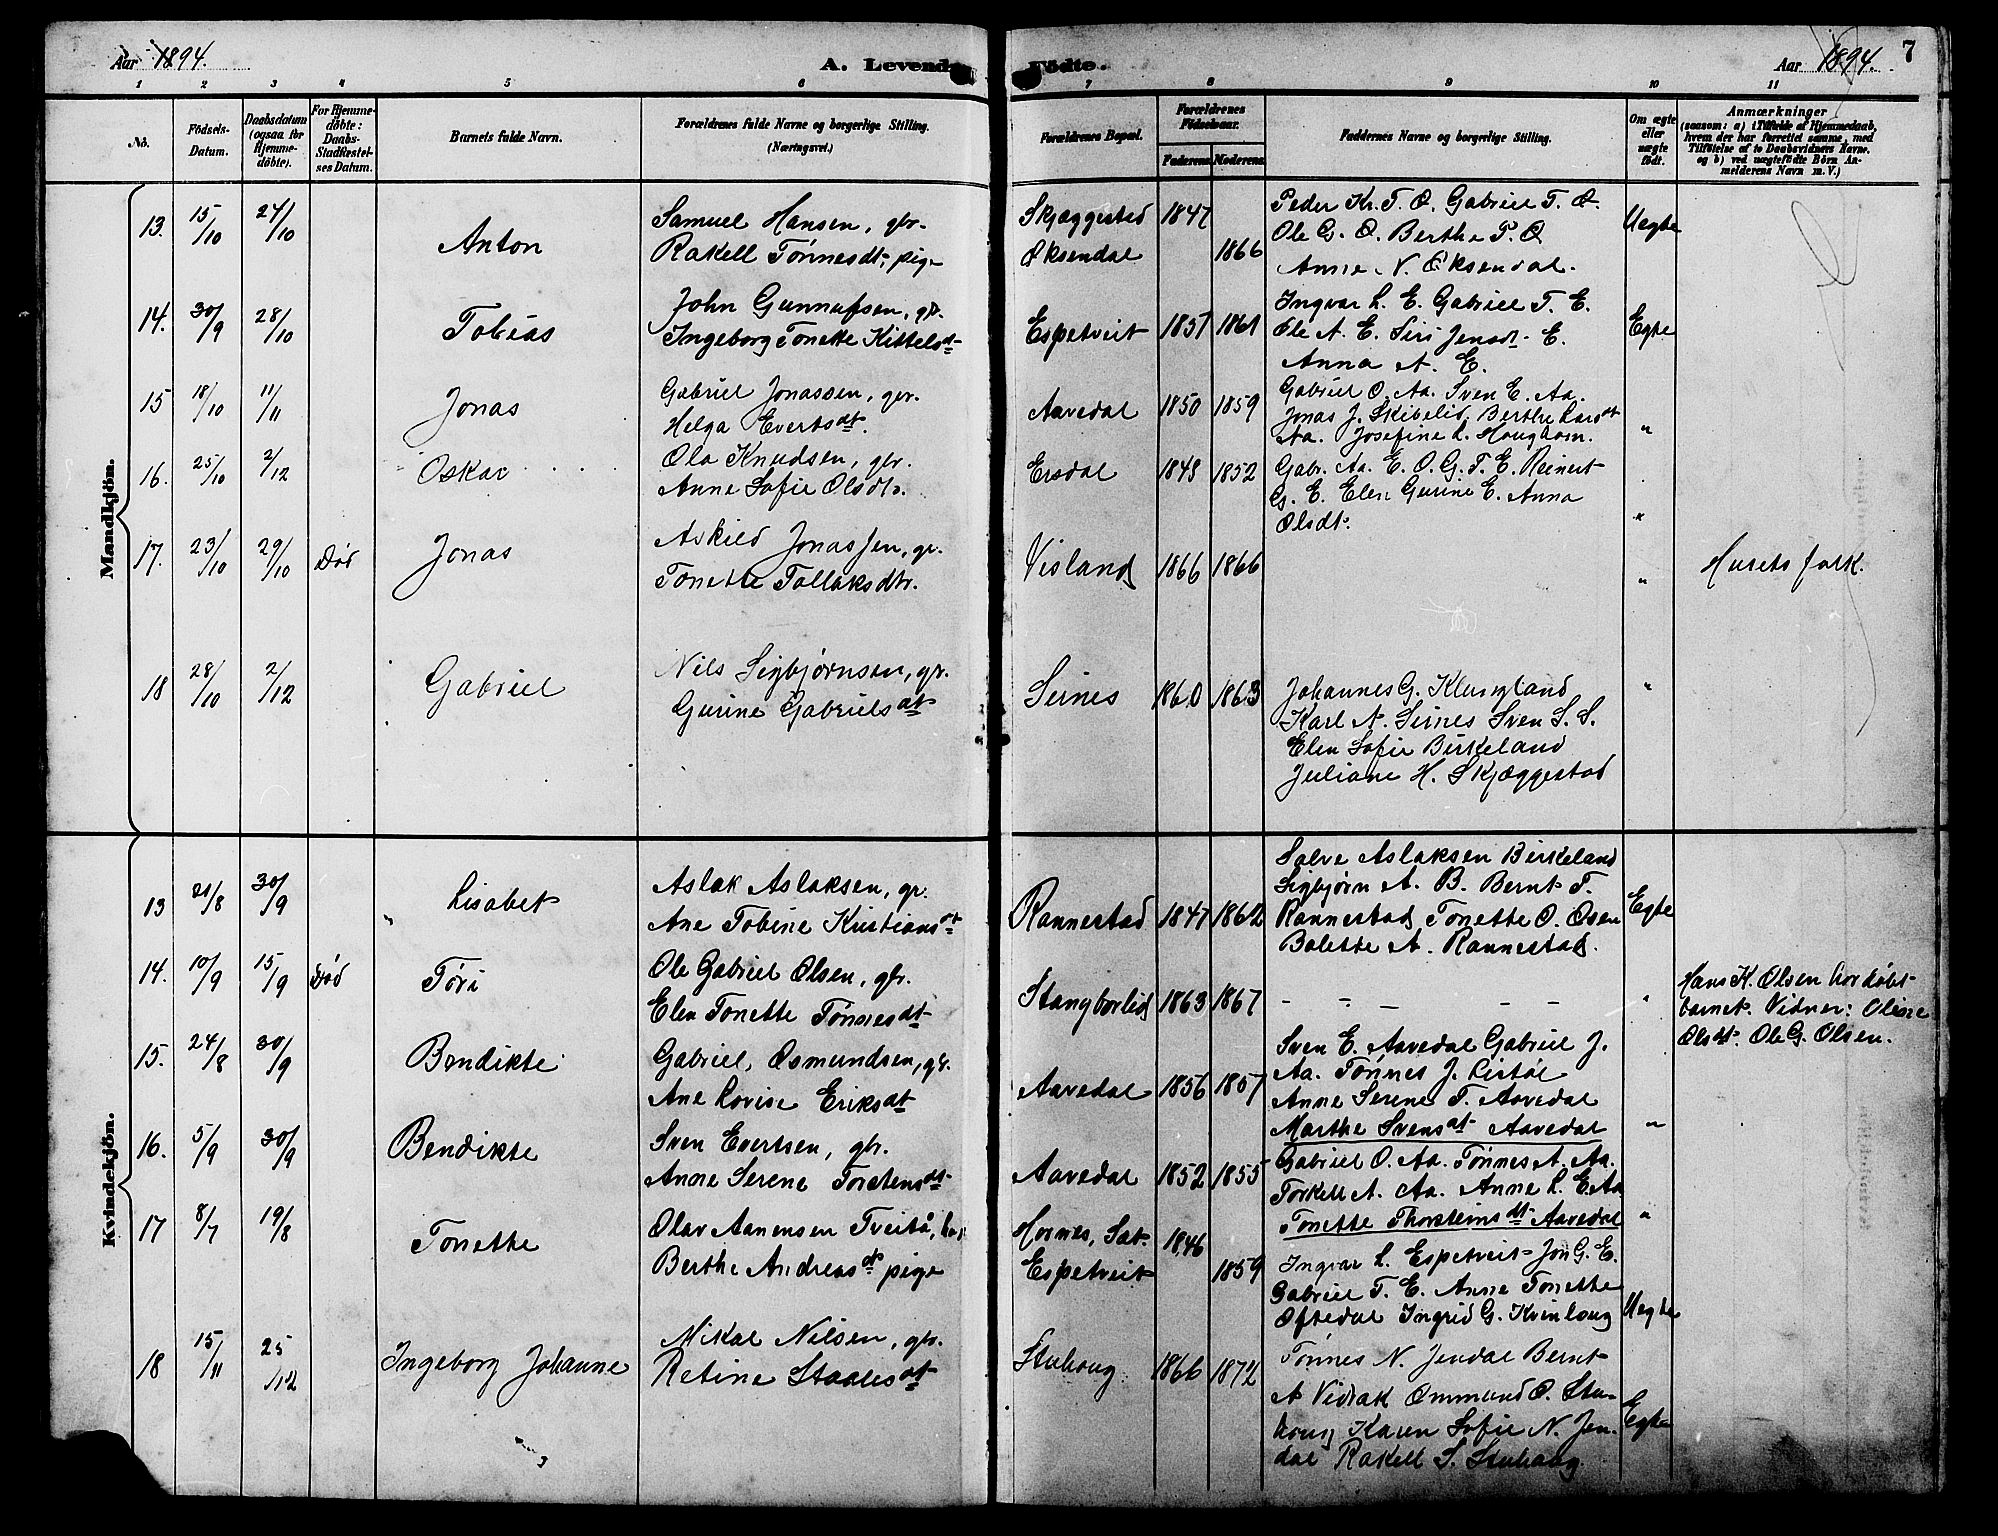 Aar 1894.
A. Levende Födte.
Aar 1894. 7
1 2 3 4 5 6 7 8 9 10 11
No.
Födsels-Datum.
Daabsdatum (ogsaa for Hjemme-döbte).
For Hjemme-döbte: Daabs-Stadfæstel-ses Datum.
Barnets fulde Navn.
Forældrenes fulde Navne og borgerlige Stilling.
(Næringsvei.)
Forældrenes Bopæl.
Forældrenes Födselsaar.
Faderens Moderens
Faddernes Navne og borgerlige Stilling.
Om ægte eller uægte födt.
Anmærkninger
(saasom: a) i Tilfælde af Hjemmedaab,
hvem der har forrettet samme, med
Tilföielse af to Daabsvidners Navne.
og b) ved uægtefödte Börn An-
melderens Navn m. V.)
Mandkjön.
13. 15/10 24/10 Anton
Samuel Hansen, gbr.
Rakell Tønnesdt, pige
Skjæggestad 1847
Øksendal 1866
Peder Kr. T. Ø. Gabriel T. Ø.
Ole G. Ø. Berthe T. Ø
Anne N. Øksendal.
Uegte
14. 30/9 28/10 Tobias
John Gunnufsen, gb.
Ingeborg Tonette Kittelsdt
Espetveit 1857 1861
Ingvar L. E. Gabriel T. E.
Ole A. E. Siri Jensdt E.
Anna A. E.
Egte
15 18/10 11/11 Jonas
Gabriel Jonassen, gbr.
Helga Evertsdt.
Aavedal 1850 1859
Gabriel O. Aa. Sven E. Aa.
Jonas J. Skibelid, Berthe Larsdt
Aa. Josefine L. Haughom.
"
16. 25/10 2/12 Oskar
Ola Knudsen, gbr.
Anne Sofie Olsdtr.
Ersdal 1848 1852
Gabr. Aa. E. O. G. T. E. Reinert
G. E. Elen Gurine E. Anna
Olsdt.
"
17. 23/10 29/10 Död Jonas
Askild Jonassen, gr.
Tonette Tollaksdtr.
Visland 1866 1866
"
Husets folk.
18 28/10 2/12 Gabriel
Nils Sigbjørnsen, gbr.
Gurine Gabrielsdt
Seines 1860 1863
Johannes G. Klungland
Karl N. Seines Sven S. S.
Elen Sofie Birkeland
Juliane H. Skjæggestad
"
Kvindekjön.
13 21/8 30/9 Lisabet
Aslak Aslaksen, gr.
Ane Tobine Kristiansdt
Rannestad 1847 1862
Salve Aslaksen Birkeland
Sigbjørn A. B. Bernt T.
Rannestad Tonette O. Osen
Bolette A. Rannestad.
Egte
14. 10/9 15/9 Död Töri
Ole Gabriel Olsen, gbr.
Elen Tonette Tønnesdt
Stangborlid 1863 1867
"
Hans K. Olsen har döbt
barnet. Vidner: Olene
Olsdt. Ole G. Olsen.
15. 24/8 30/9 Bendikte
Gabriel Osmundsen, gb.
Ane Lovise Eriksdt
Aavedal 1856 1857
Sven E. Aavedal Gabriel J.
Aa. Tönnes J. Listöl
Anne Serene T. Aavedal
Marthe Svensdt Aavedal
"
16. 5/9 30/9 Bendikte
Sven Evertsen, gbr.
Anne Serene Torstensdt
Aavedal 1852 1855
Gabriel O. Aa. Tönnes A. Aa.
Torkell A. Aa. Anne L. E. Aa
Tonette Thorsteinsdt Aavedal
"
17 8/7 19/8 Tonette
Olav Aanensen Tveitå,
Berthe Andreasdt pige
Hornes, Sæt. 1846
Espetveit 1859
Ingvar L. Espetveit Jon G. E.
Gabriel T. E. Anne Tonette
Oftedal Ingrid G. Kvinlaug
Uegte
18 15/11 25/12 Ingeborg Johanne
Mikal Nilsen, gbr.
Retine Staalesdt
Stuhaug 1866 1872
Tönnes N. Jendal Bernt
A Vidrak Ommund O. Stu-
haug Karen Sofie N. Jen-
dal Rakell S. Stuhaug.
Egte